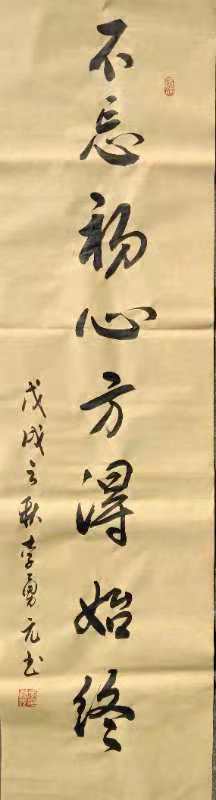 不忘初心方得始终
戊戌之秋李勇元书